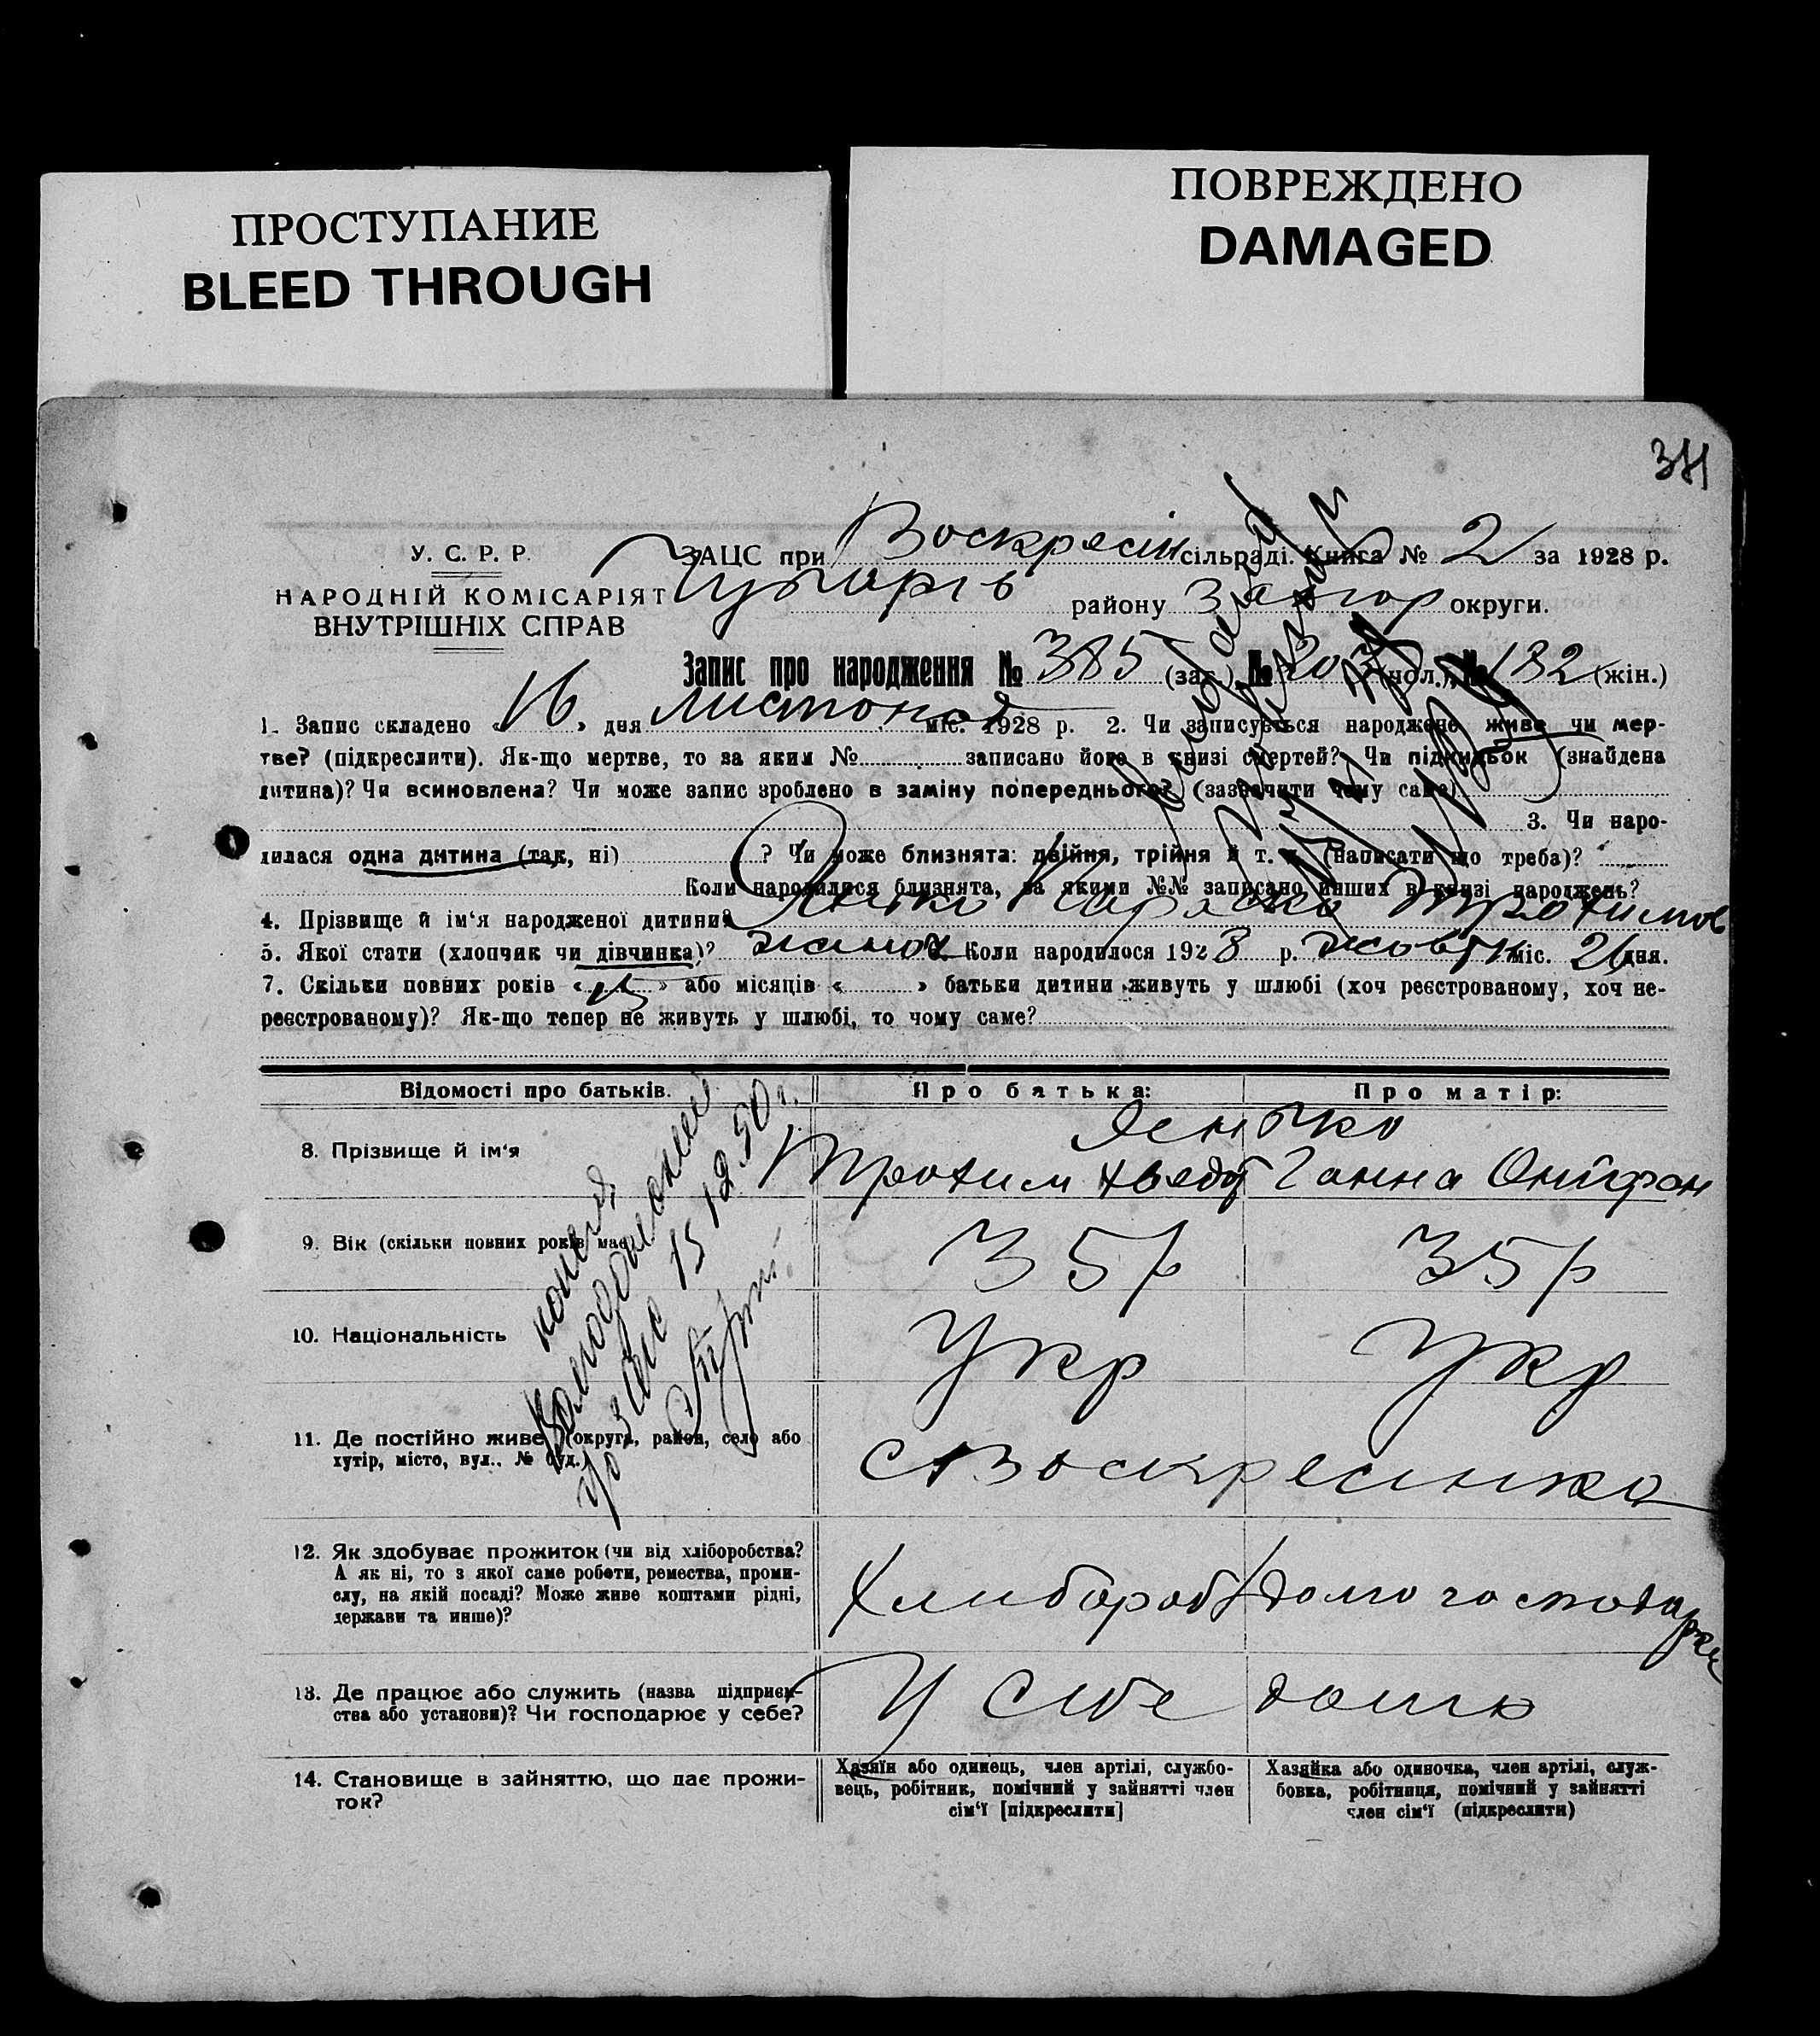 ПРОСТУПАНИЕ
BLEED THROUGH
ПОВРЕЖДЕНО
DAMAGED
У. С. Р. Р.
НАРОДНІЙ КОМІСАРІЯТ
ВНУТРІШНІХ СПРАВ
ЗАЦС при Воскресін сільраді. Книга № 2 за 1928 р.
району Запор округи.
Запис про народження № 385 (заг.), № 203 (чол.), № 182 (жін.)
1. Запис складено „ 16 „ дня листопад міс. 1928 р. 2. Чи записується народжене живе чи мер-
тве? (підкреслити). Як-що мертве, то за яким № записано його в книзі смертей? Чи підкидьок (знайдена
дитина)? Чи всиновлена? Чи може запис зроблено в заміну попереднього? (зазначити чому саме)
3. Чи наро-
дилася одна дитина (так, ні) ? Чи може близнята: двійня, трійня й т. и. (написати що треба)?
Коли народилися близнята, за якими №№ записано инших в книзі народжень?
4. Прізвище й ім‘я народженої дитини?
5. Якої стати (хлопчик чи дівчинка)? жіноч. Коли народилося 1928 р. жовтн міс. 26 дня.
7. Скільки повних років « 15 » або місяців « » батьки дитини живуть у шлюбі (хоч реєстрованому, хоч не-
реєстрованому)? Як-що тепер не живуть у шлюбі, то чому саме?
Відомості про батьків.
Про батька:
Про матір:
8. Прізвище й ім‘я
Трохим Хведу Ганна Онифрон
9. Вік (скільки повних років має)
35 р
35 р
10. Національність
Укр
Укр
11. Де постійно живе (округа, район, село або
хутір, місто, вул.. № буд.)
с Воскресинка
12. Як здобуває прожиток (чи від хліборобства?
А як ні, то з якої саме роботи, ремества, проми-
слу, на якій посаді? Може живе коштами рідні,
держави та инше)?
Хлибороб
домо господарка
13. Де працює або служить (назва підприєм-
ства або установи)? Чи господарює у себе?
У себе дома
14. Становище в зайняттю, що дає прожи-
ток?
Хазяїн або одинець, член артілі, службо-
вець, робітник, помічний у зайнятті член
сім‘ї [підкреслити]
Хазяйка або одиночка, член артілі, служ-
бовка, робітниця, помічний у зайнятті
член сім‘ї (підкреслити)
15 12.50 г.